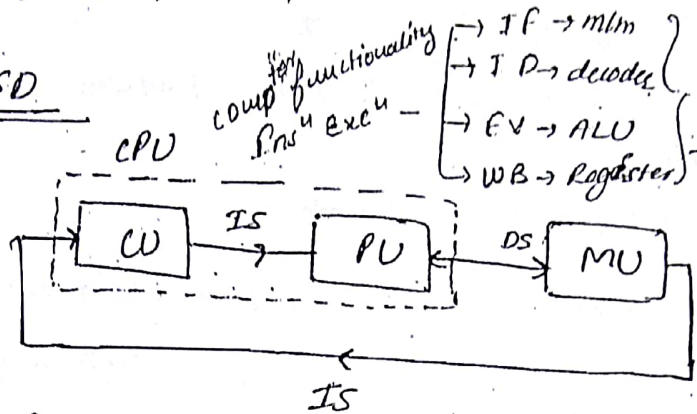 SD
comp^ter functionality
Ins^n exc^n —
→ IF → m/m
→ ID → decoder
→ EX → ALU
→ WB → Register
CPU
CU
IS
PU
DS
MU
IS